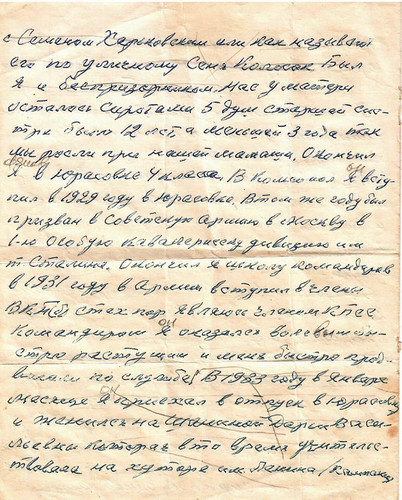 с Семеном Харьковским или как называют
его по уличному Сень Колиок Был
я и беспризорником. Нас у матери
осталось сиротами 5 душ старшей сес-
тре было 12 лет а меньшей 3 года так
мы росли при нашей мамаши. Окончил
я в Юрасовке 4 класса. В Комсомол я всту
он
пил в 1929 году в Юрасовке. В том же году был
призван в Советскую Армию в Москву в
1-ю Особую Кавалерискую дивизию им
т. Сталина. Окончил я школу командиров
в 1931 году в Армии вступил в члены
ВКПб с тех пор являюсь членом КПСС
Командиром я оказался волевым бы-
он
стро растущим и мень быстро прод-
вигали по службе. В 1933 году в Январе
он
месяце я приехал в отпуск в Юрасовку
и женился на Дарии Васи-
льевни которая в то время учитель-
ствовала на хуторе им. Ленина /